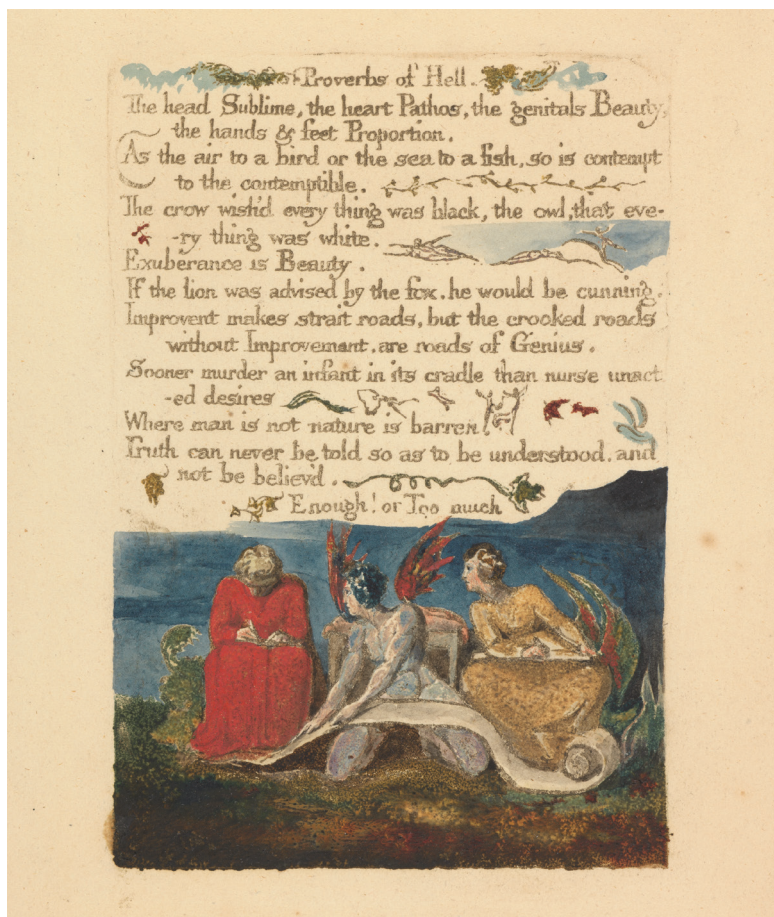 Proverbs of Hell.
The head Sublime, the heart Pathos, the genitals Beauty,
the hands & feet Proportion.
As the air to a bird or the sea to a fish, so is contempt
to the contemptible.
The crow wish'd every thing was black, the owl, that eve-
-ry thing was white.
Exuberance is Beauty.
If the lion was advised by the fox. he would be cunning.
Improvent makes strait roads, but the crooked roads
without Improvement. are roads of Genius.
Sooner murder an infant in its cradle than nurse unact
-ed desires
Where man is not nature is barren.
Truth can never be told so as to be understood. and
not be believ'd.
Enough! or Too much